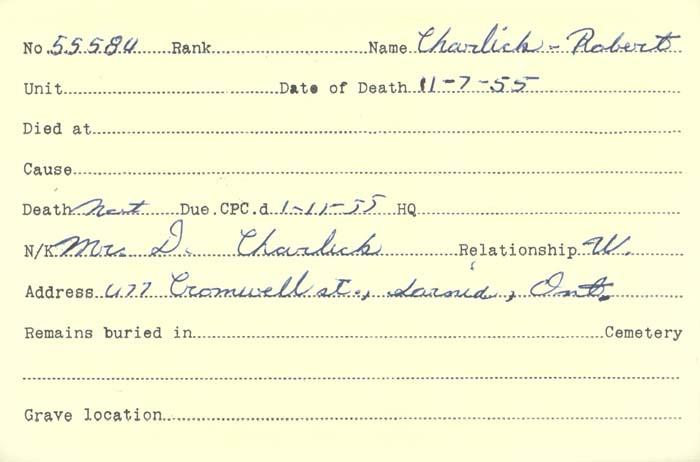 No. 55584 Rank Name Charlick - Robert
Unit Date of Death 11-7-55
Died at
Cause
Death Not Due. CPC.d 1-11-55 HQ
N/K Mrs. D. Charlick Relationship W.
Address 477 Cromwell st., Sarnia, Ont.
Remains buried in Cemetery
Grave location